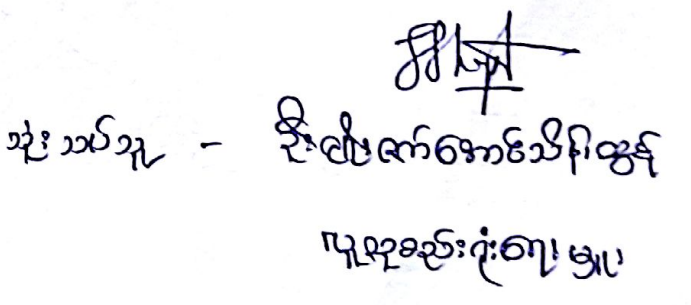 သုံးသပ်သူ - ဦးဖြိုးဇော်အောင်သိန်းထွန်း
လူစုစည်းရုံးရေးမှူး